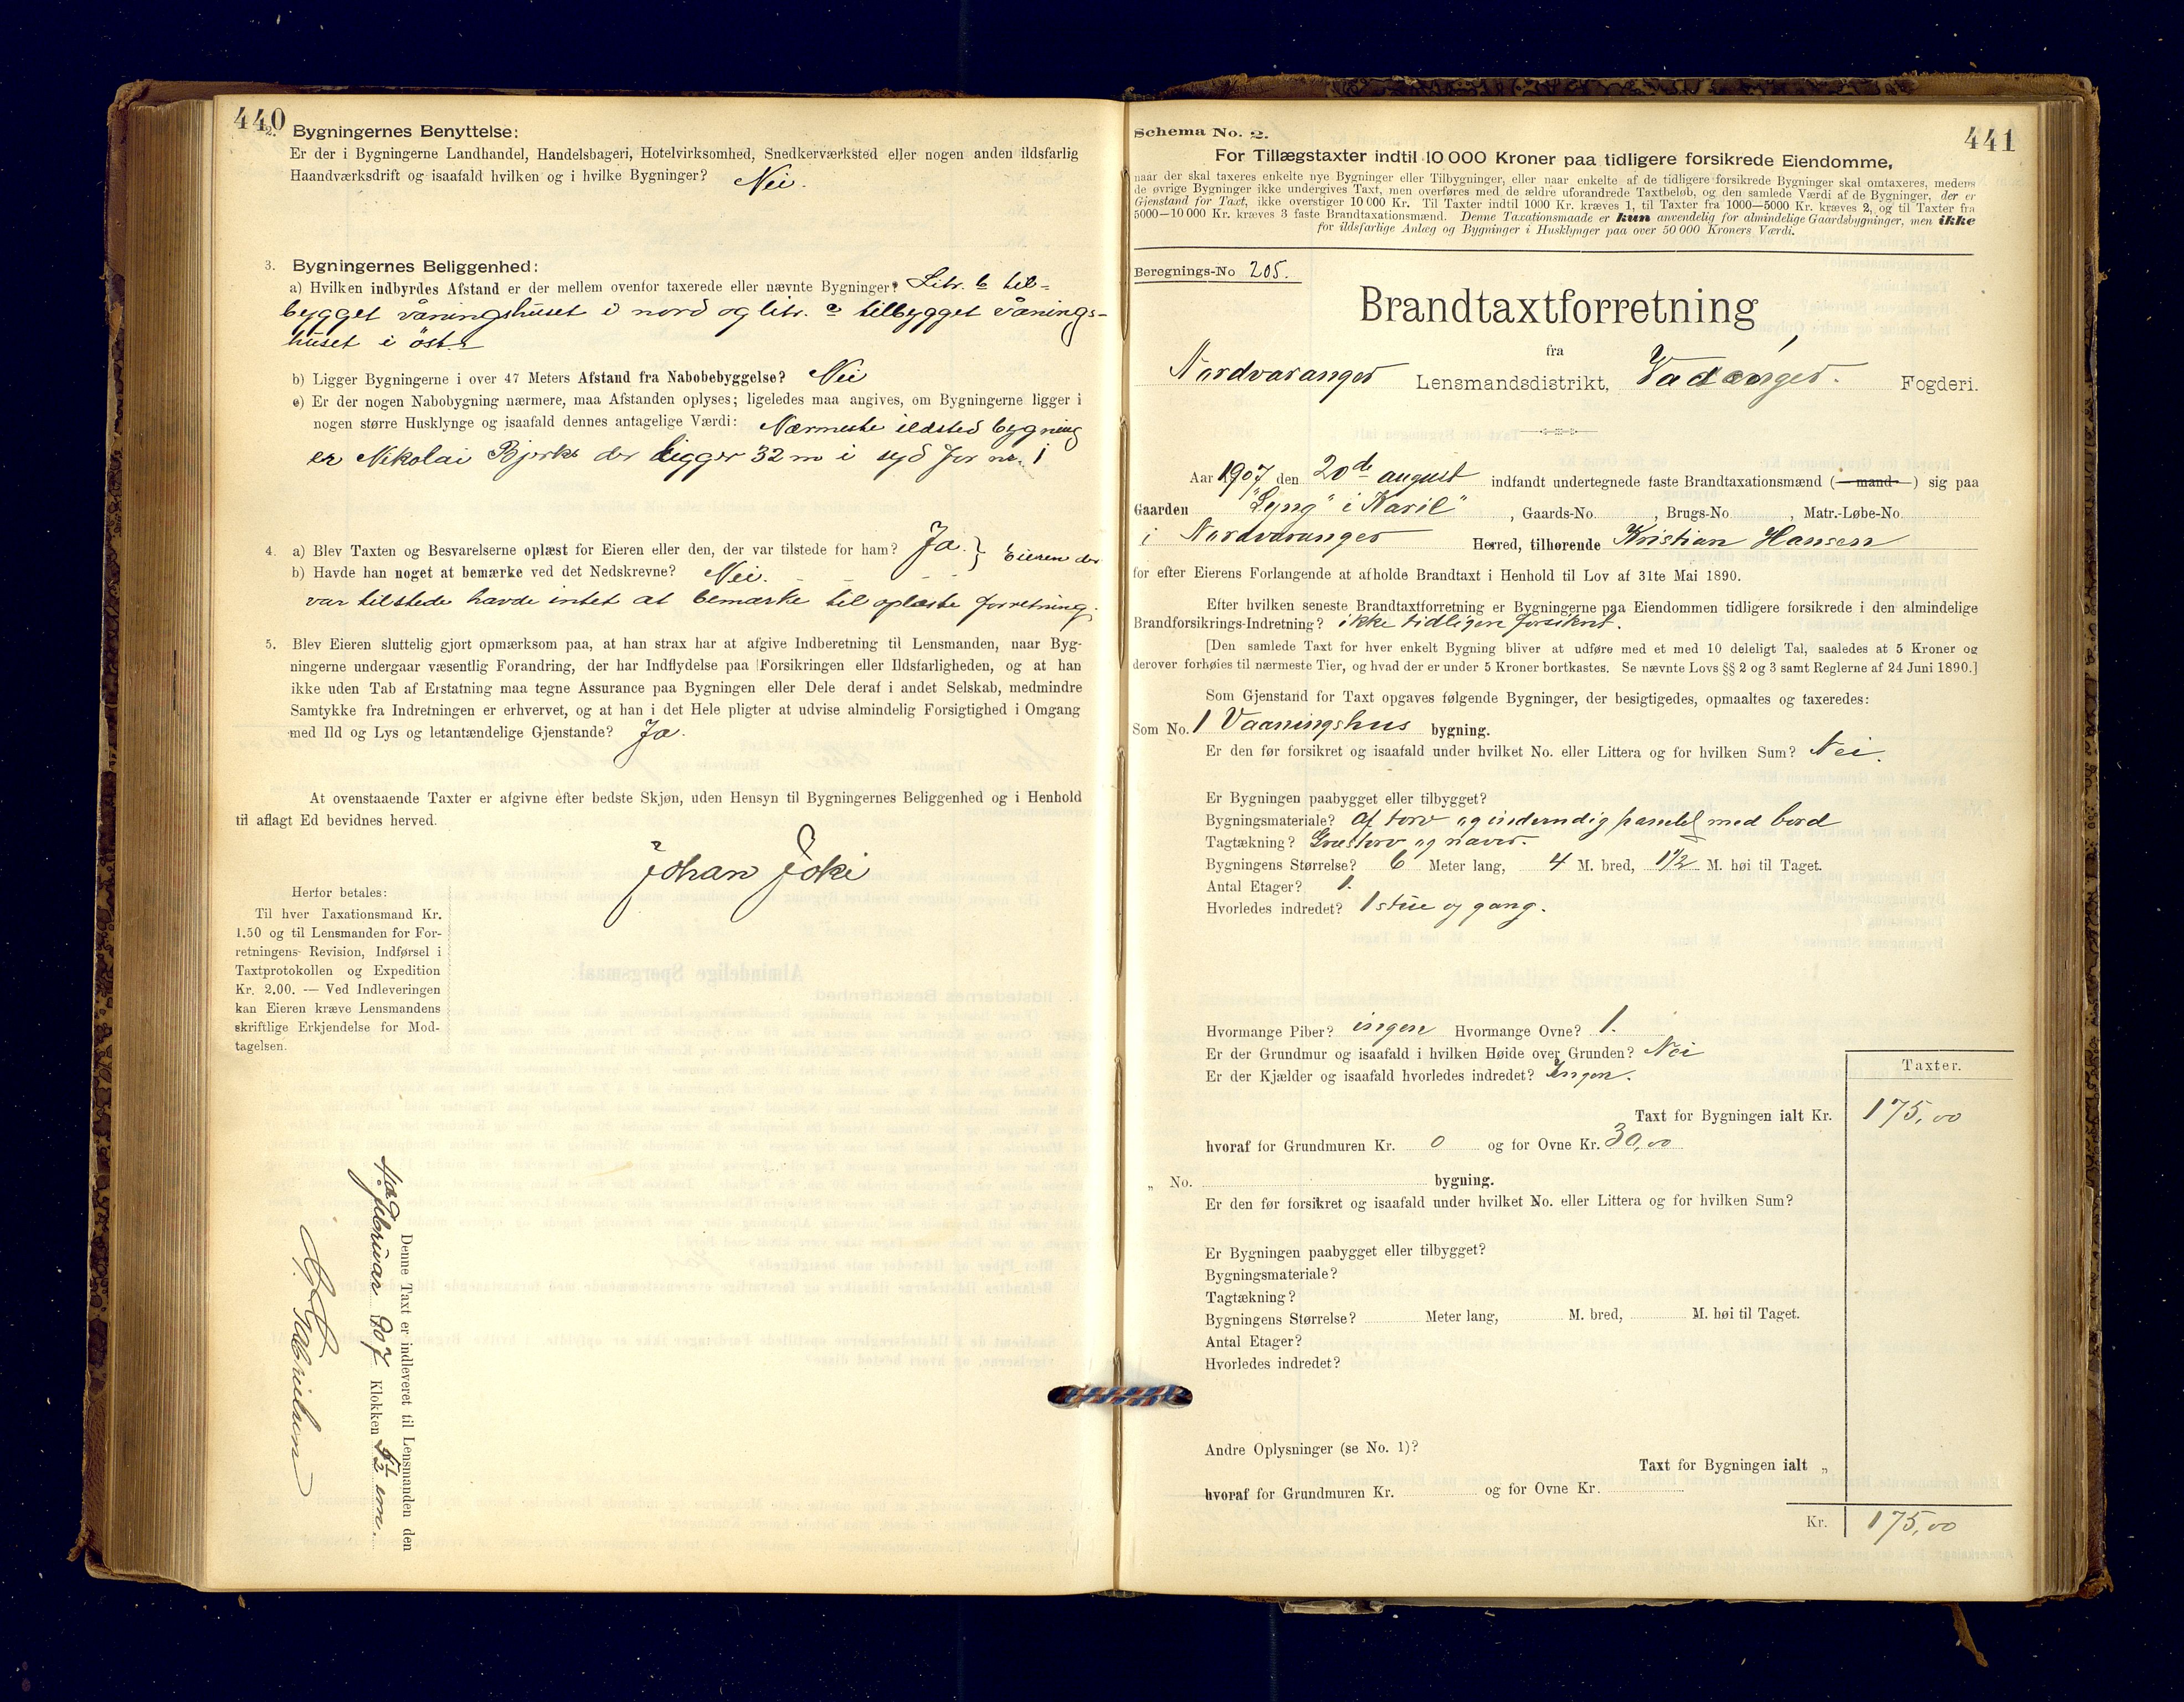 440
2. Bygningernes Benyttelse:
Er der i Bygningerne Landhandel, Handelsbageri, Hotelvirksomhed, Snedkerværksted eller nogen anden ildsfarlig
Haandværksdrift og isaafald hvilken og i hvilke Bygninger? Nei.
3. Bygningernes Beliggenhed:
a) Hvilken indbyrdes Afstand er der mellem ovenfor taxerede eller nævnte Bygninger? Litr. b til=
bygget våningshuset i nord og litr. a tilbygget vånings-
huset i öst.
b) Ligger Bygningerne i over 47 Meters Afstand fra Nabobebyggelse? Nei
c) Er der nogen Nabobygning nærmere, maa Afstanden oplyses; ligeledes maa angives, om Bygningerne ligger i
nogen større Husklynge og isaafald dennes antagelige Værdi: Nærmeste ildsted bygning
er Nikolai Bjerks der ligger 32 m i syd for nr. 1
4. a) Blev Taxten og Besvarelserne oplæst for Eieren eller den, der var tilstede for ham? Ja. } Eieren der
b) Havde han noget at bemærke ved det Nedskrevne? Nei.
var tilstede havde intet at bemærke til oplæste forretning.
5. Blev Eieren sluttelig gjort opmærksom paa, at han strax har at afgive Indberetning til Lensmanden, naar Byg-
ningerne undergaar væsentlig Forandring, der har Indflydelse paa Forsikringen eller Ildsfarligheden, og at han
ikke uden Tab af Erstatning maa tegne Assurance paa Bygningen eller Dele deraf i andet Selskab, medmindre
Samtykke fra Indretningen er erhvervet, og at han i det Hele pligter at udvise almindelig Forsigtighed i Omgang
med Ild og Lys og letantændelige Gjenstande? Ja.
At ovenstaaende Taxter er afgivne efter bedste Skjøn, uden Hensyn til Bygningernes Beliggenhed og i Henhold
til aflagt Ed bevidnes herved.
Johan Joki
Herfor betales:
Til hver Taxationsmand Kr.
1.50 og til Lensmanden for For-
retningens Revision, Indførsel i
Taxtprotokollen og Expedition
Kr. 2.00. — Ved Indleveringen
kan Eieren kræve Lensmandens
skriftlige Erkjendelse for Mod-
tagelsen.
Denne Taxt er indleveret til Lensmanden den
februar 907 Klokken em.
441
Schema No. 2.
For Tillægstaxter indtil 10 000 Kroner paa tidligere forsikrede Eiendomme,
naar der skal taxeres enkelte nye Bygninger eller Tilbygninger, eller naar enkelte af de tidligere forsikrede Bygninger skal omtaxeres, medens
de øvrige Bygninger ikke undergives Taxt, men overføres med de ældre uforandrede Taxtbeløb, og den samlede Værdi af de Bygninger, der er
Gjenstand for Taxt, ikke overstiger 10 000 Kr. Til Taxter indtil 1000 Kr. kræves 1, til Taxter fra 1000—5000 Kr. kræves 2, og til Taxter fra
5000—10 000 Kr. kræves 3 faste Brandtaxationsmænd. Denne Taxationsmaade er kun anvendelig for almindelige Gaardsbygninger, men ikke
for ildsfarlige Anlæg og Bygninger i Husklynger paa over 50 000 Kroners Værdi.
Beregnings-No 205.
Brandtaxtforretning
fra
Nordvaranger Lensmandsdistrikt, Fogderi.
Aar 1907 den 20de august indfandt undertegnede faste Brandtaxationsmænd (mand) sig paa
Gaarden "Lyng" i , Gaards-No. , Brugs-No , Matr.-Løbe-No.
i Nordvaranger Herred, tilhørende Kristian Hansen
for efter Eierens Forlangende at afholde Brandtaxt i Henhold til Lov af 31te Mai 1890.
Efter hvilken seneste Brandtaxtforretning er Bygningerne paa Eiendommen tidligere forsikrede i den almindelige
Brandforsikrings-Indretning? ikke tidligere forsikret.
[Den samlede Taxt for hver enkelt Bygning bliver at udføre med et med 10 deleligt Tal, saaledes at 5 Kroner og
derover forhøies til nærmeste Tier, og hvad der er under 5 Kroner bortkastes. Se nævnte Lovs §§ 2 og 3 samt Reglerne af 24 Juni 1890.]
Som Gjenstand for Taxt opgaves følgende Bygninger, der besigtigedes, opmaaltes og taxeredes:
Som No. 1 Vaaningshus bygning.
Er den før forsikret og isaafald under hvilket No. eller Littera og for hvilken Sum? Nei.
Er Bygningen paabygget eller tilbygget?
Bygningsmateriale? Af torv og indvendig panelt med bord
Tagtækning? Græstorv og næver.
Bygningens Størrelse? 6 Meter lang, 4 M. bred, 1 1/2 M. høi til Taget.
Antal Etager? 1.
Hvorledes indredet? 1 stue og gang.
Hvormange Piber? ingen Hvormange Ovne? 1.
Er der Grundmur og isaafald i hvilken Høide over Grunden? Nei
Er der Kjælder og isaafald hvorledes indredet? Ingen.
Taxter.
Taxt for Bygningen ialt Kr. 175,00
hvoraf for Grundmuren Kr. 0 og for Ovne Kr. 30,00
„ No. bygning.
Er den før forsikret og isaafald under hvilket No. eller Littera og for hvilken Sum?
Er Bygningen paabygget eller tilbygget?
Bygningsmateriale?
Tagtækning?
Bygningens Størrelse? Meter lang, M. bred, M. høi til Taget.
Antal Etager?
Hvorledes indredet?
Andre Oplysninger (se No. 1)?
Taxt for Bygningen ialt „
hvoraf for Grundmuren Kr. og for Ovne Kr.
Kr. 175,00